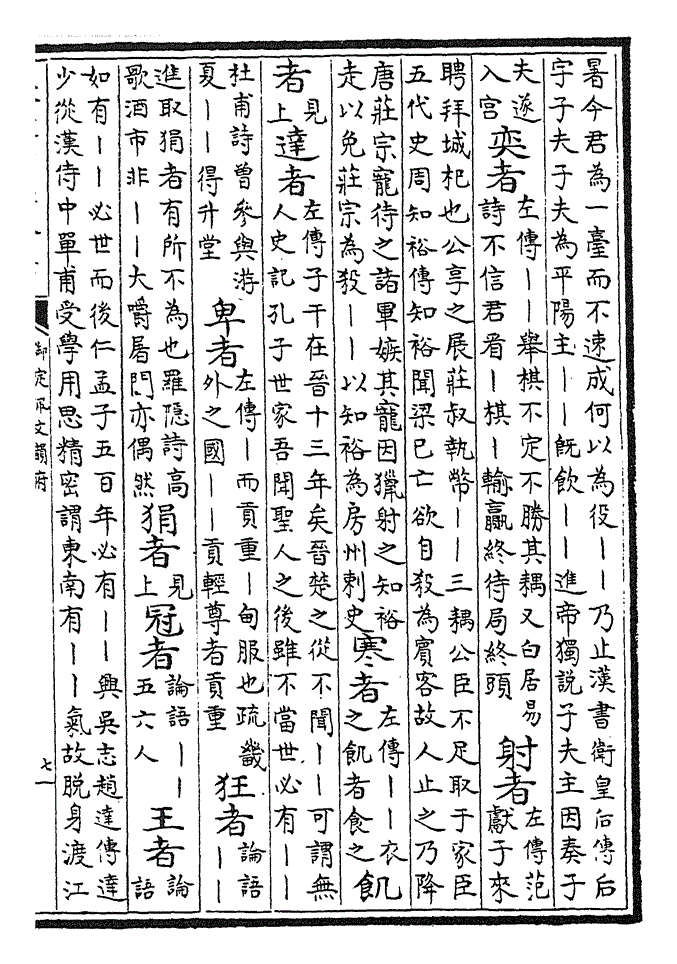 暑今君為一臺而不速成何以為役丨丨乃止漢書衛皇后傳后
字子夫子夫為平陽主丨丨既飲丨丨進帝獨説子夫主因奏子
夫遂
入宮
奕者
左傳丨丨舉棋不定不勝其耦又白居易
詩不信君看丨棋丨輸贏終待局終頭
射者
左傳范
獻子來
聘拜城杞也公享之展莊叔執幣丨丨三耦公臣不足取于家臣
五代史周知裕傳知裕聞梁已亡欲自殺為賓客故人止之乃降
唐莊宗寵待之諸軍嫉其寵因獵射之知裕
走以免莊宗為殺丨丨以知裕為房州刺史
寒者
左傳丨丨衣
之飢者食之
飢
者
見
上
達者
左傳子干在晉十三年矣晉楚之從不聞丨丨可謂無
人史記孔子世家吾聞聖人之後雖不當世必有丨丨
杜甫詩曾參與游
夏丨丨得升堂
卑者
左傳丨而貢重丨甸服也疏畿
外之國丨丨貢輕尊者貢重
狂者
論語
丨丨
進取狷者有所不為也羅隱詩高
歌酒市非丨丨大嚼屠門亦偶然
狷者
見
上
冠者
論語丨丨
五六人
王者
論
語
如有丨丨必世而後仁孟子五百年必有丨丨興吳志趙達傳達
少從漢侍中單甫受學用思精密謂東南有丨丨氣故脱身渡江
御定佩文韻府
七